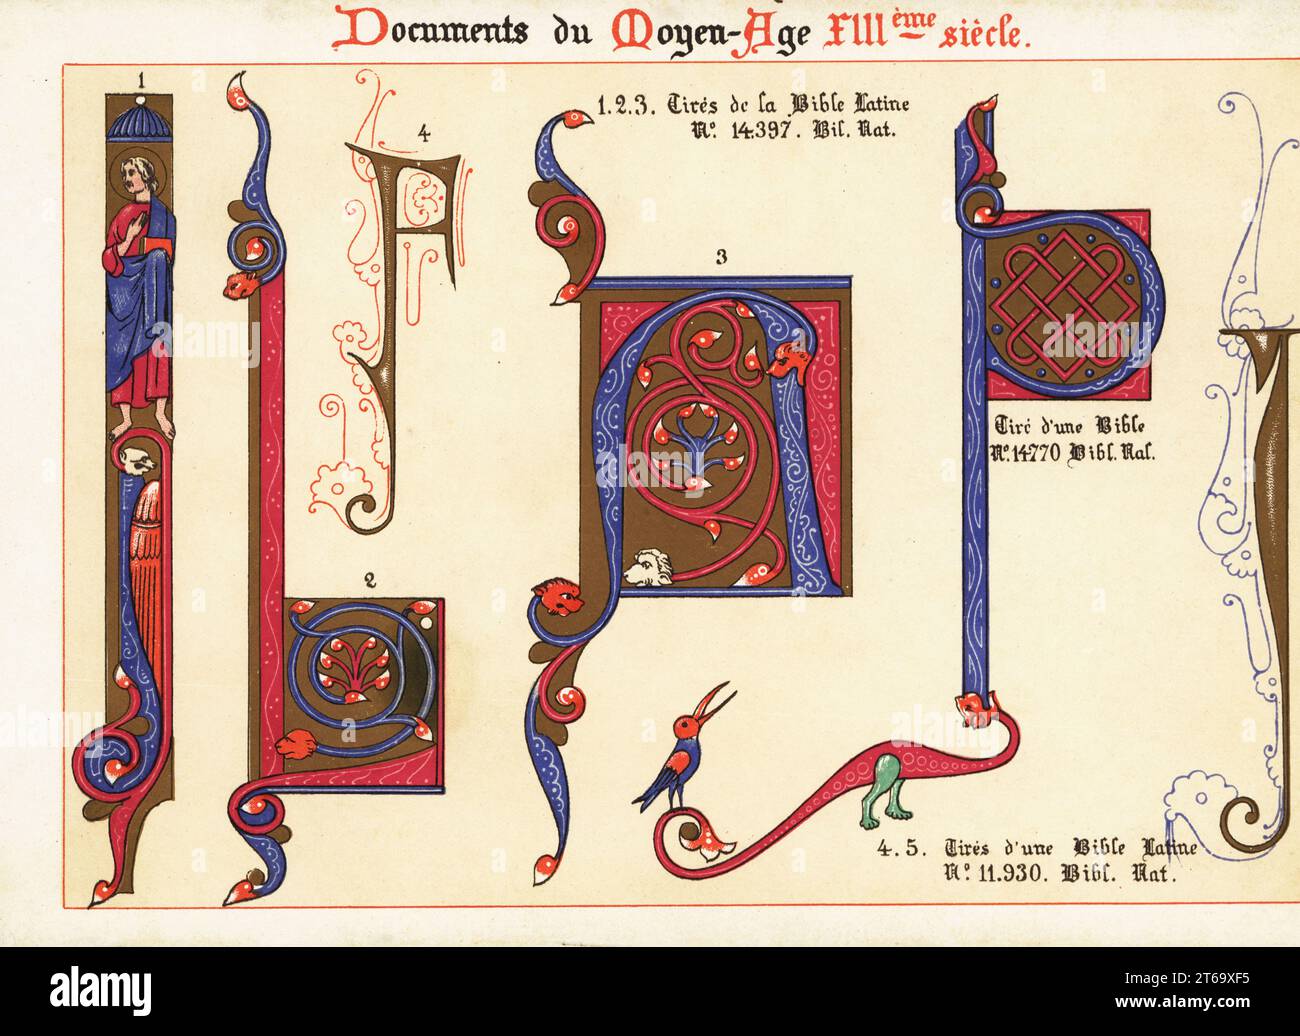 Documents du Moyen-Age XIIIème siècle.
1
4
1.2.3. Tirés de la Bible Latine
Nº. 14.397. Bil. Nat.
3
Tiré d'une Bible
Nº. 14770 Bibl. Nat.
2
4.5. Tirés d'une Bible Latine
Nº. 11.930. Bibl. Nat.
alamy
Image ID: 2T69XF5
www.alamy.com